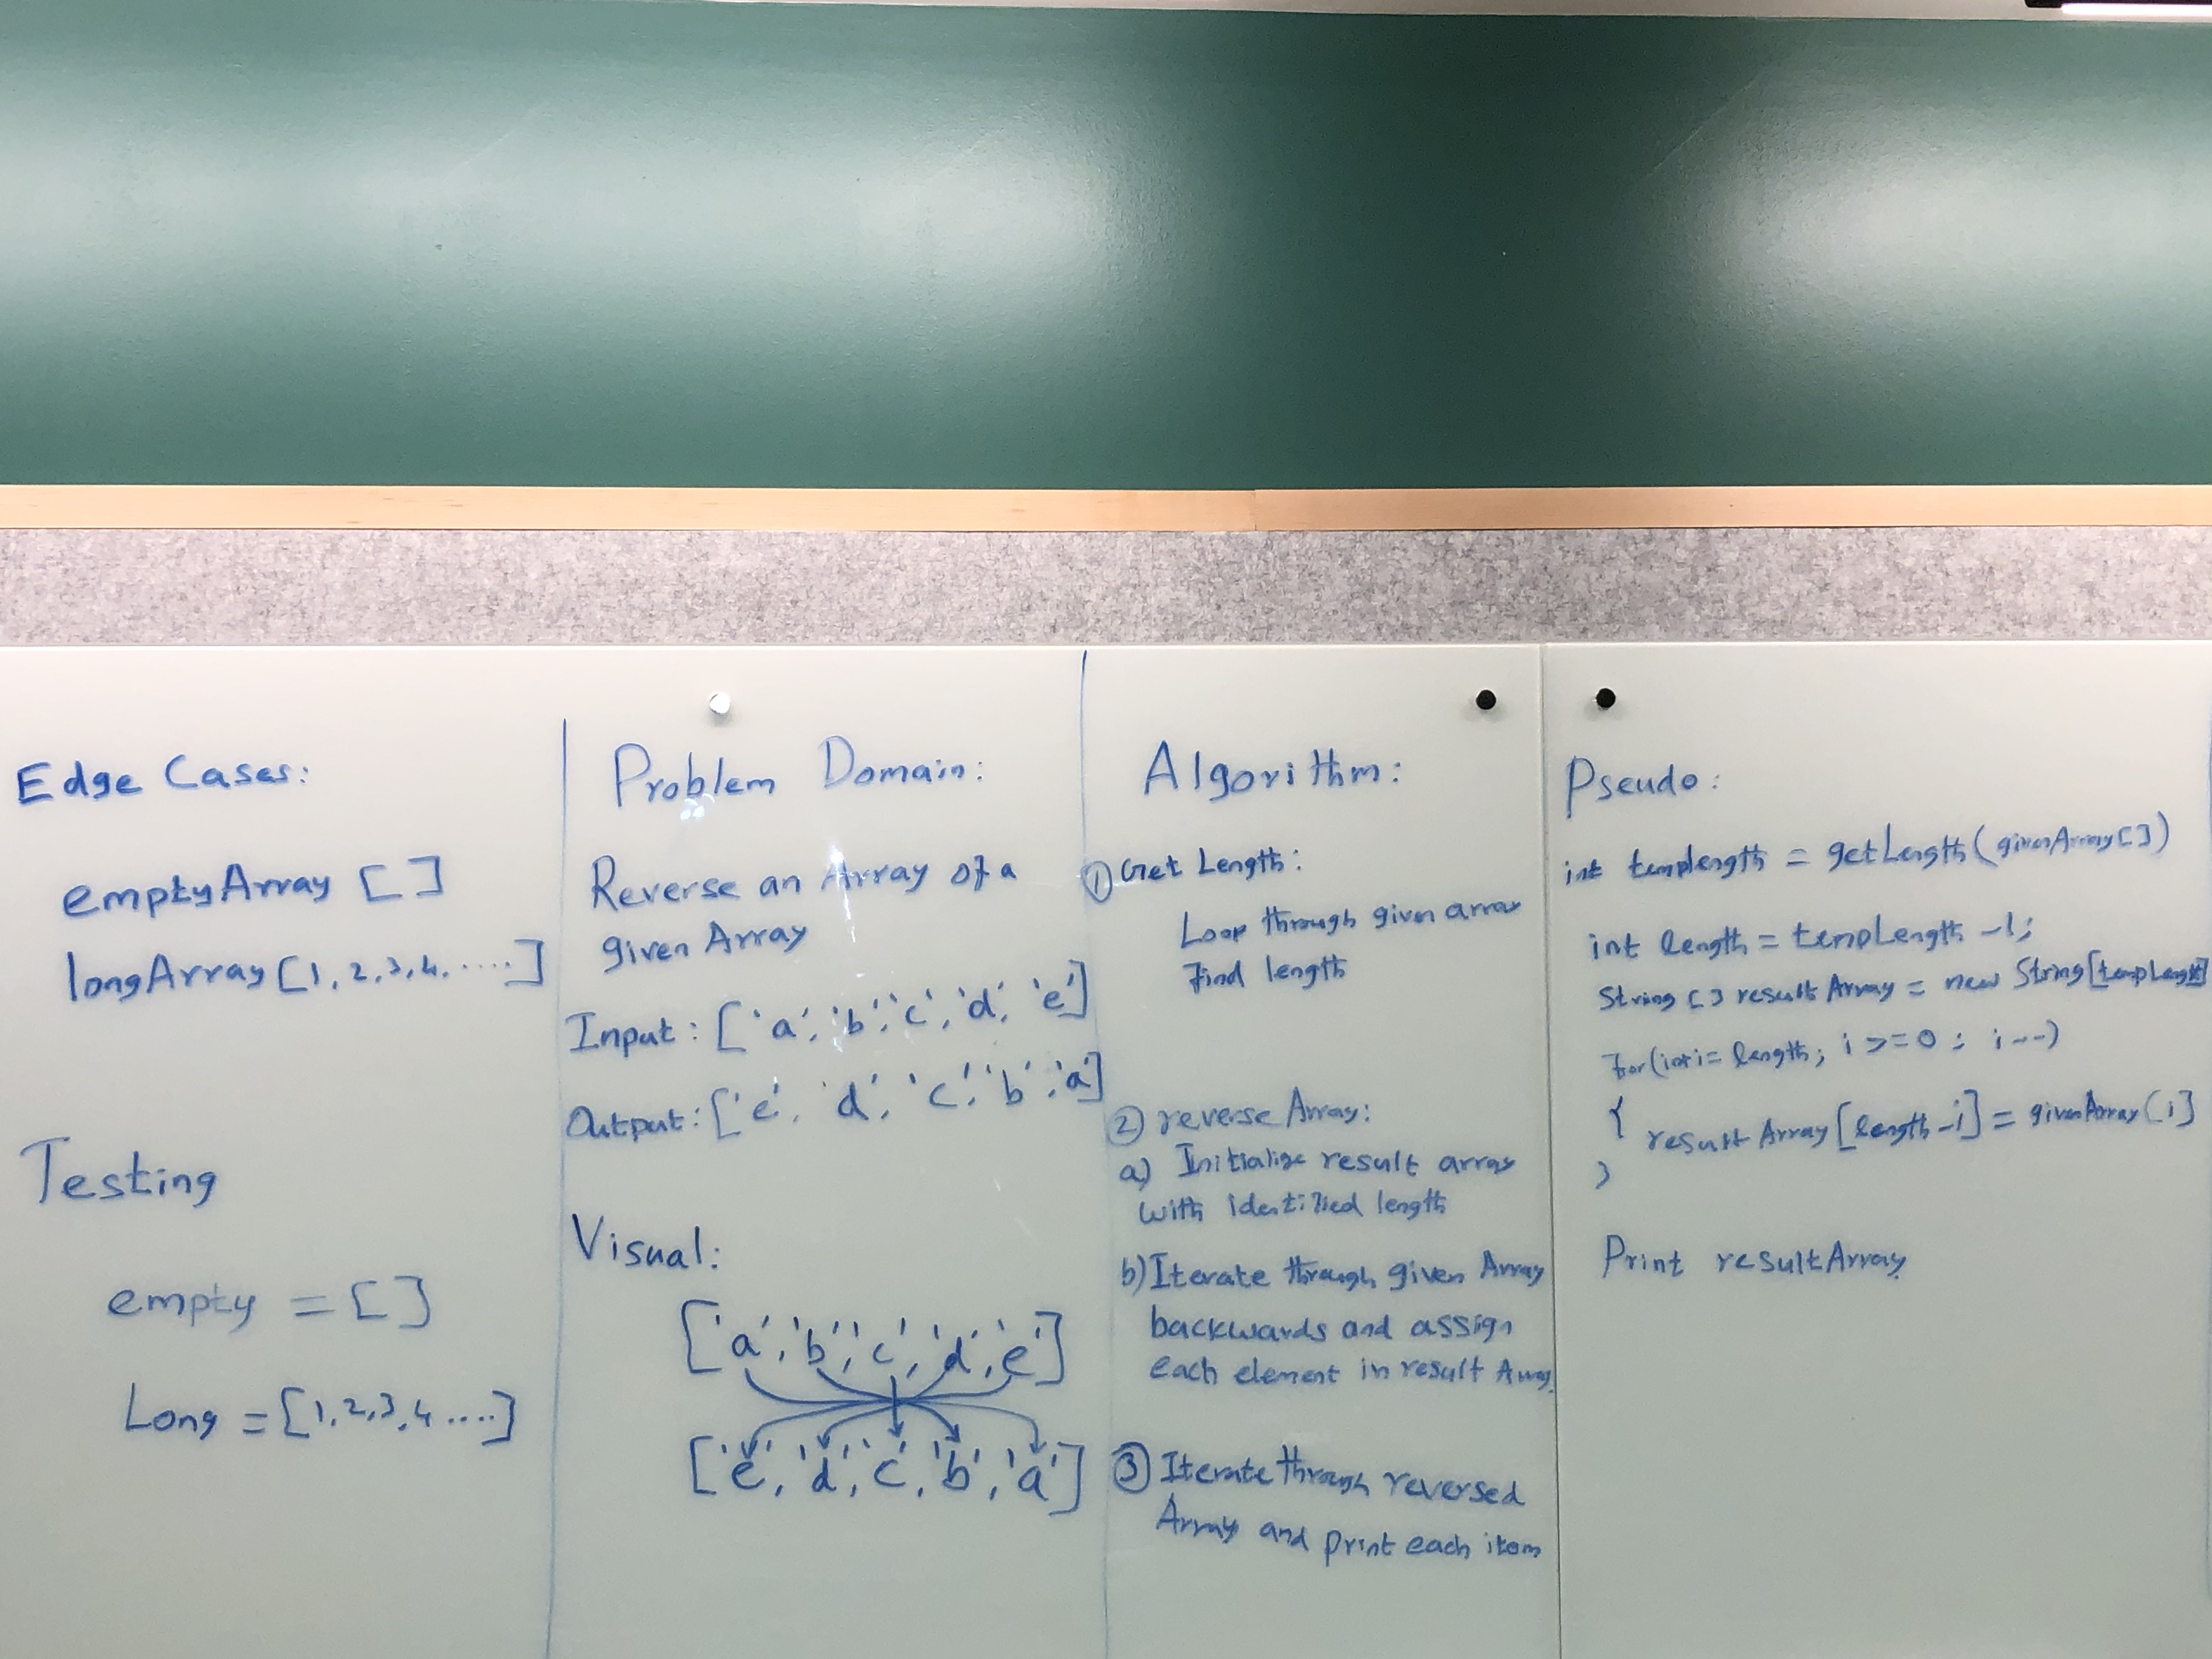 Edge Cases:
emptyArray []
longArray [1, 2, 3, 4, .....]
Testing
empty = []
Long = [1, 2, 3, 4 ....]
Problem Domain:
Reverse an Array of a
given Array
Input: ['a', 'b', 'c', 'd', 'e']
Output: ['e', 'd', 'c', 'b', 'a']
Visual:
['a', 'b', 'c', 'd', 'e']
['e', 'd', 'c', 'b', 'a']
Algorithm:
① Get Length:
Loop through given array
Find length
② reverse Array:
a) Initialize result array
with identified length
b) Iterate through given Array
backwards and assign
each element in result Array.
③ Iterate through reversed
Array and print each item
Pseudo:
int templength = getLength(givenArray[])
int length = tempLength -1;
String [] result Array = new String[tempLength]
For(int i = length; i >= 0 ; i--)
{
result Array [length - i] = givenArray [i]
}
Print resultArray.